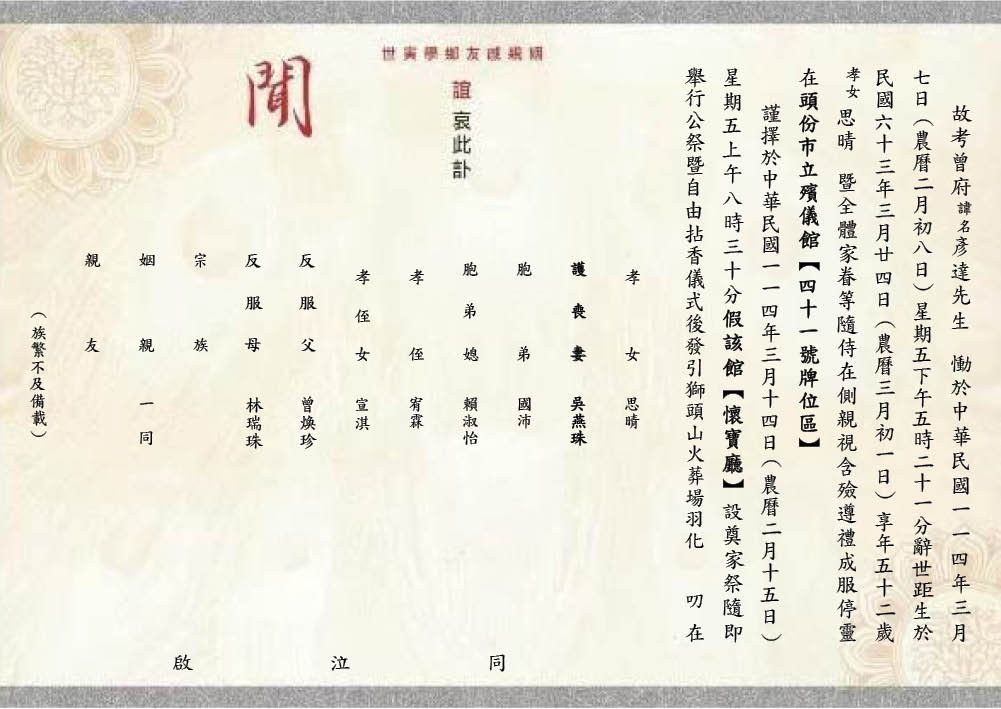 故考曾府諱名彥達先生 慟於中華民國一一四年三月
七日(農曆二月初八日)星期五下午五時二十一分辭世距生於
民國六十三年三月廿四日(農曆三月初一日)享年五十二歲
孝女思晴 暨全體家眷等隨侍在側親視含殮遵禮成服停靈
在頭份市立殯儀館【四十一號牌位區】
謹擇於中華民國一一四年三月十四日(農曆二月十五日)
星期五上午八時三十分假該館【懷寶廳】設奠家祭隨即
舉行公祭暨自由拈香儀式後發引獅頭山火葬場羽化 叨在
世寅學鄉友戚親姻
誼哀此訃
聞
孝女 思晴
護喪妻 吳燕珠
胞弟 國沛
胞弟媳 賴淑怡
孝侄 宥霖
孝侄女 宣淇
反服父 曾煥珍
反服母 林瑞珠
宗族
姻親 一同
親友
(族繁不及備載)
同泣啟